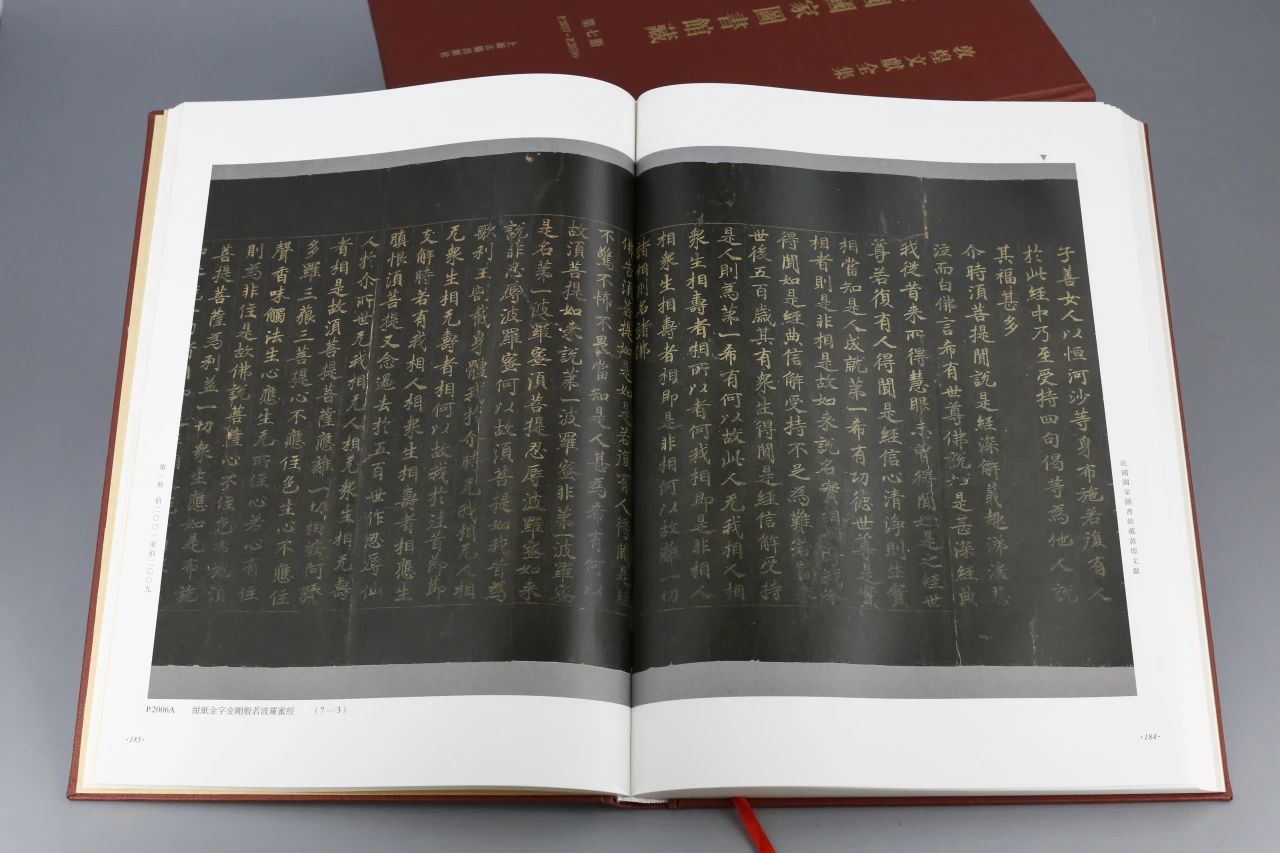 國國家圖書館藏
敦煌文獻全集
第七冊
P.2037~P.2038
上海古籍出版社
法國國家圖書館藏敦煌文獻
子善女人以恒河沙等身布施若復有人
於此經中乃至受持四句偈等為他人說
其福甚多
尒時須菩提聞說是經深解義趣涕淚悲
泣而白佛言希有世尊佛說如是甚深經典
我從昔来所得慧眼未曾得聞如是之經世
尊若復有人得聞是經信心清淨則生實
相當知是人成就苐一希有功德世尊是實
相者則是非相是故如来說名實相
得聞如是經典信解受持不足為難若當來
世後五百歲其有衆生得聞是經信解受持
是人則為苐一希有何以故此人无我相人相
衆生相壽者相所以者何我相即是非相人
相衆生相壽者相即是非相何以故離一切
諸相則名諸佛
佛告須菩提如是如是若復有人得聞是經
不驚不怖不畏當知是人甚為希有何以
故須菩提如来說苐一波羅蜜非苐一波羅蜜
是名苐一波羅蜜須菩提忍辱波羅蜜如来
說非忍辱波羅蜜何以故須菩提如我昔為
歌利王割截身體我於尒時无我相无人相
无衆生相无壽者相何以故我於往昔節
支解時若有我相人相衆生相壽者相應生
瞋恨須菩提又念過去於五百世作忍辱仙
人於尒所世无我相无人相无衆生相无壽
者相是故須菩提菩薩應離一切相發阿耨
多羅三藐三菩提心不應住色生心不應住
聲香味觸法生心應生无所住心若心有住
則為非住是故佛說菩薩心不住色布施須
菩提菩薩為利益一切衆生應如是布施
第一冊 伯二〇〇一至伯二〇〇九
P.2006A 紺紙金字金剛般若波羅蜜經 (7—3)
·185·
·184·